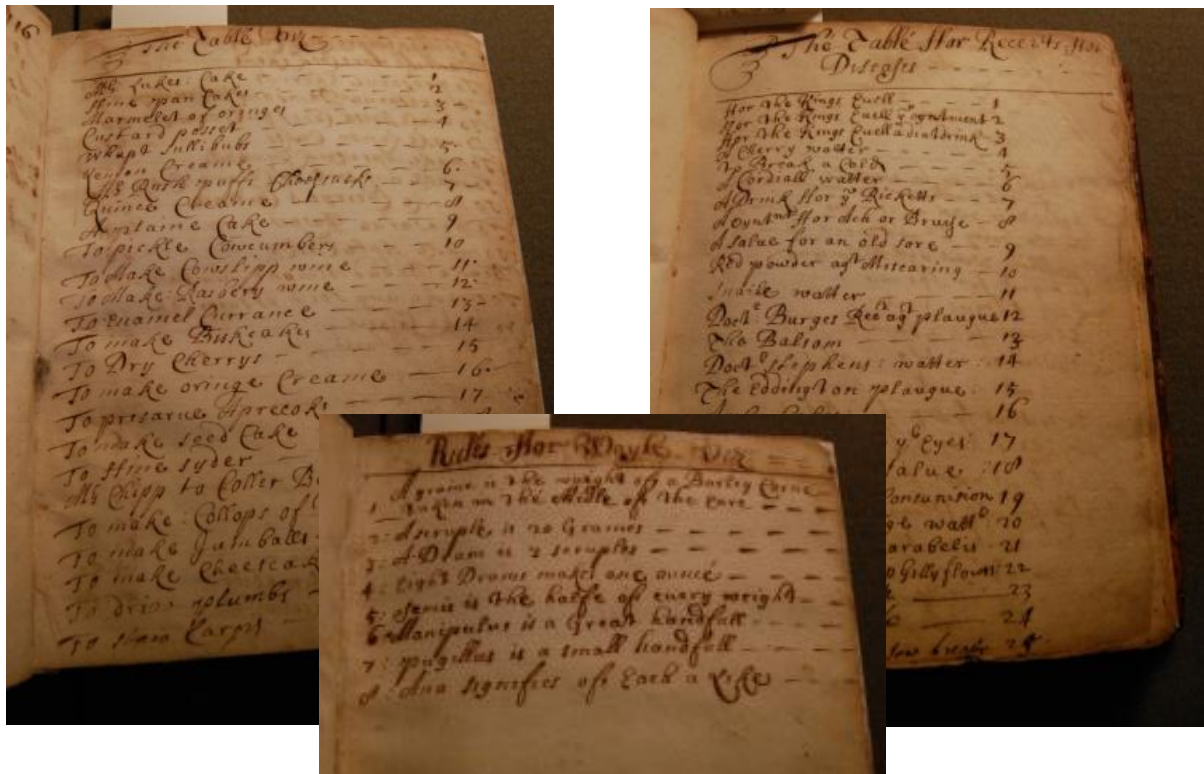 116
The Table Viz
Mrs Lukes: Cake 1
ffine pan Cakes 2
Marmelet of oringes 3
Custard posset 4
Whipt sullibubs 5
Lemon Creame 6
Mrs Rush puffs 7
Quince Creame 8
A plaine Cake 9
To pickle Cowcumbers 10
To Make Cowslipp wine 11
To Make: Rasbery wine 12
To Enamel Currance 13
To make Biskcakes 14
To Dry Cherrys 15
To make oringe Creame 16
To presarve Aprecoks 17
To make seed Cake
To ffine syder
Mrs Chipp to Coller
To make: Collops of
To make Jumballs
To make Cheesecak
To drie plumbs
To stew Carps
The Table ffor Receits ffor
Diseases
ffor the Kings Euell 1
ffor the Kings Euell ye oyntment 2
ffor the Kings Euell a diat drink 3
A Cherry watter 4
To Break a Cold 5
A Cordiall watter 6
A Drink ffor ye Ricketts 7
A Oyntmt ffor Ach or Bruise 8
A Salve for an old sore 9
Red powder agt Miscaring 10
Snaile watter 11
Doctr Burges Rec agt plaugue 12
The Balsom 13
Doctr Stephens: watter 14
The Eddington plaugue 15
16
ye Eyes: 17
salve 18
Consumtion 19
watter 20
21
Gillyflowrs 22
23
24
25
Rules ffor Viz
1 A graine is the weight of a Barley Corne
taken in the Midle of the eare
2: A scruple is 20 Graines
3: A Dram is 3 scruples
4: Eight Drams makes one ounce
5: semie is the halfe of every weight
6 Manipulus is a Great handfull
7: pugillus is a small handfull
8: Ana signifies of Each a Like